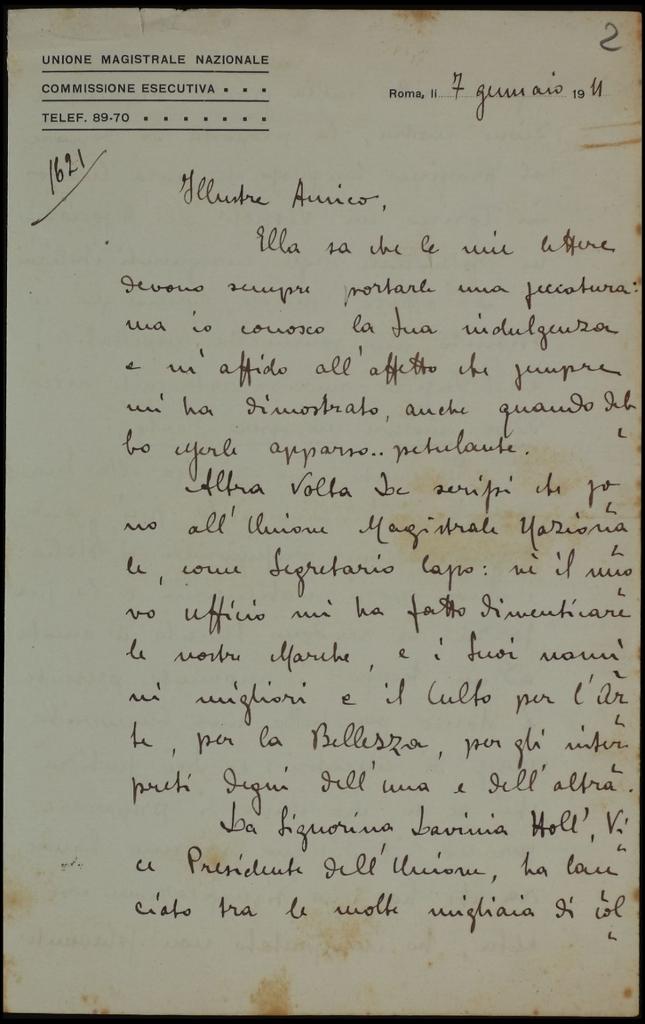 2
UNIONE MAGISTRALE NAZIONALE
COMMISSIONE ESECUTIVA . . .
TELEF. 89-70 . . . . . . .
Roma, li 7 gennaio 1911
1621
Illustre Amico,
Ella sa che le mie lettere
devono sempre portarle una seccatura:
ma io conosco la Sua indulgenza
e m'affido all'affetto che sempre
mi ha dimostrato, anche quando deb
bo esserle apparso.. petulante.
Altra volta Le scrissi che so
no all'Unione Magistrale Naziona
le, come Segretario Capo: nè il nuo
vo ufficio mi ha fatto dimenticare
le nostre Marche, e i Suoi uomi
ni migliori e il Culto per l'Ar
te, per la Bellezza, per gli inter
preti degni dell'una e dell'altra.
La Signorina Lavinia Holl', Vi
ce Presidente dell'Unione, ha lan
ciato tra le molte migliaia di col